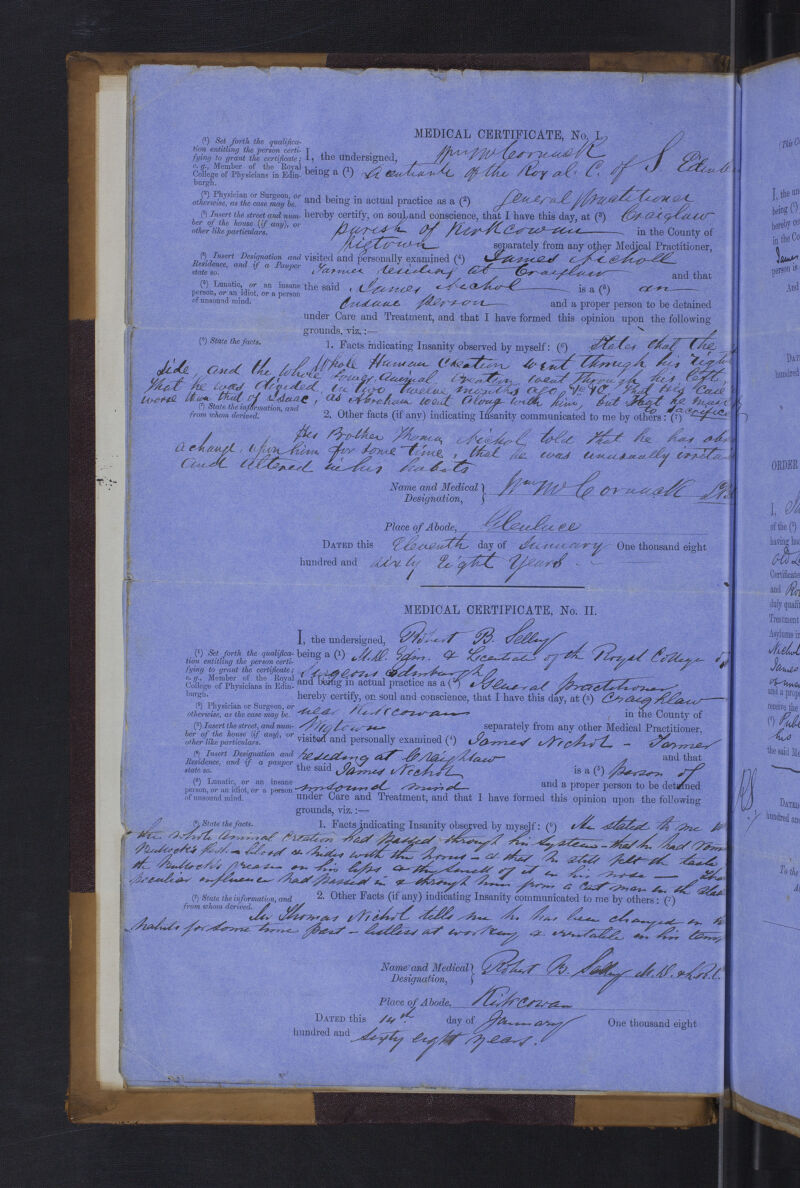 MEDICAL CERTIFICATE, No. I.
(¹) Set forth the qualifica-
tion entitling the person certi-
fying to grant the certificate;
e. g., Member of the Royal
College of Physicians in Edin-
burgh.
I, the undersigned, Wm McCormack
being a (¹) Licentiate of the Royal C. of S. Edinbu
(²) Physician or Surgeon, or
otherwise, as the case may be.
and being in actual practice as a (²) General Practitioner
(³) Insert the street and num-
ber of the house (if any), or
other like particulars.
hereby certify, on soul and conscience, that I have this day, at (³) Craiglaw
parish of Kirkcowan in the County of
Wigtown separately from any other Medical Practitioner,
(⁴) Insert Designation and
Residence, and if a Pauper
state so.
visited and personally examined (⁴) James Nicholl
Farmer residing at Craiglaw and that
(⁵) Lunatic, or an insane
person, or an idiot, or a person
of unsound mind.
the said James Nichol is a (⁵) an
Insane person and a proper person to be detained
under Care and Treatment, and that I have formed this opinion upon the following
grounds, viz.:—
(⁶) State the facts.
1. Facts indicating Insanity observed by myself: (⁶) States that the
Whole Human Creation went through his right
side, and the whole Lower Animal Creation went through his left,
That he was divided in two twelve months ago, &c &c that his Case
worse than that of Isaac, as Abraham went along with him, but that he must
to sacrifice
(⁷) State the information, and
from whom derived.
2. Other facts (if any) indicating Insanity communicated to me by others: (⁷)
His Brother Thomas Nichol told that he has obs
a change upon him for some time, that he was unusually irrita
and altered in his habits
Name and Medical
Designation, Wm McCormack
Place of Abode, Glenluce
DATED this Eleventh day of January One thousand eight
hundred and sixty Eight Years
MEDICAL CERTIFICATE, No. II.
I, the undersigned, Robert B. Selby
(¹) Set forth the qualifica-
tion entitling the person certi-
fying to grant the certificate;
e. g., Member of the Royal
College of Physicians in Edin-
burgh.
being a (¹) M.D. Edin. & Licentiate of the Royal College of
Surgeons Edinburgh
and being in actual practice as a (²) General Practitioner
(²) Physician or Surgeon, or
otherwise, as the case may be.
hereby certify, on soul and conscience, that I have this day, at (³) Craighlaw
near Kirkcowan in the County of
(³) Insert the street, and num-
ber of the house (if any), or
other like particulars.
Wigtown separately from any other Medical Practitioner,
visited and personally examined (⁴) James Nichol - Farmer
(⁴) Insert Designation and
Residence, and if a pauper
state so.
residing at Craighlaw and that
the said James Nichol is a (⁵) person of
(⁵) Lunatic, or an insane
person, or an idiot, or a person
of unsound mind.
unsound mind and a proper person to be detained
under Care and Treatment, and that I have formed this opinion upon the following
grounds, viz.:—
(⁶) State the facts.
1. Facts indicating Insanity observed by myself: (⁶) He stated to me
the whole animal creation had passed through his system - that he had
Bullock's flesh & blood & hides with the horns - & that he still felt the taste
the Bullock's grease on his lips & the smell of it in his nose -
peculiar influence had passed in & through him from a
(⁷) State the information, and
from whom derived.
2. Other Facts (if any) indicating Insanity communicated to me by others: (⁷)
Thomas Nichol tells me he has been changed in
habits for some time past - listless at working & irritable in his temp
Name and Medical
Designation, Robert B. Selby M.D.
Place of Abode, Kirkcowan
DATED this 14th day of January One thousand eight
hundred and sixty eight years.
I, the un
being (¹)
hereby ce
in the Co
person is
And
DAT
hundred
ORDER
I,
of the (²)
having
Certificate
and
duly quali
Treatment
Asylums i
Nichol
James
and a prop
receive the
(³)
the said
DATED
hundred an
To the